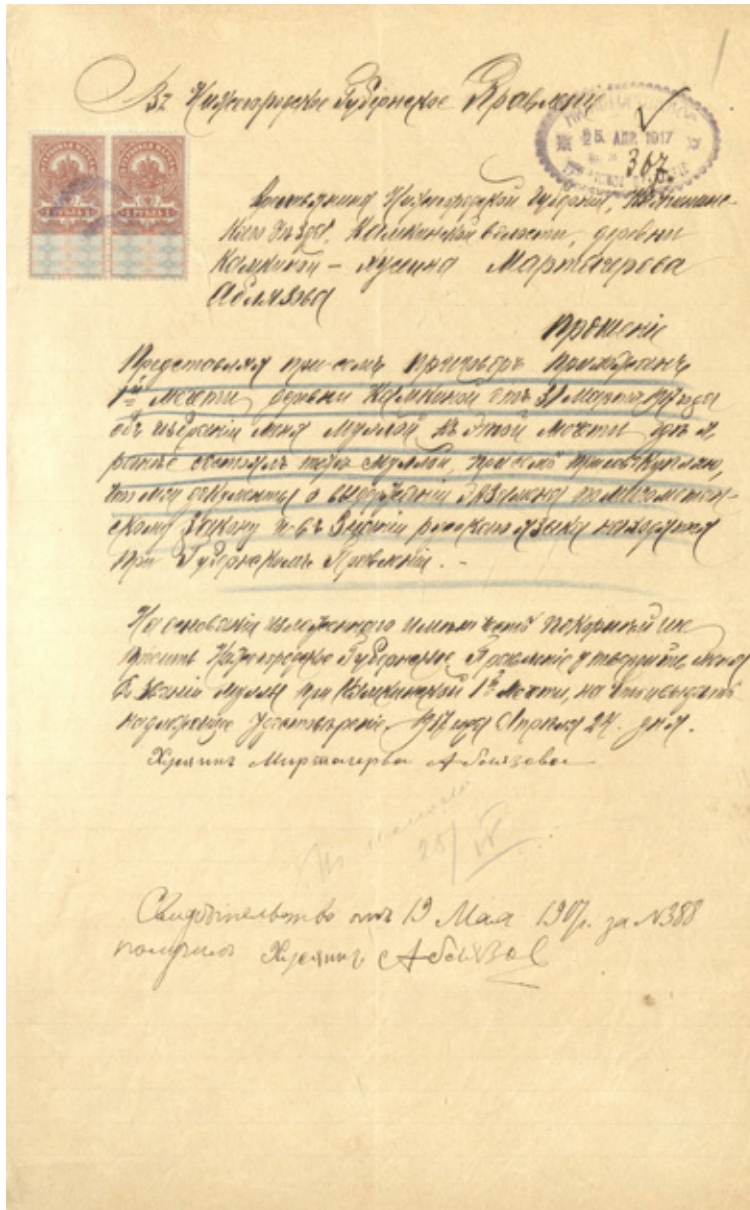 Въ Нижегородское Губернское Правление
25 АПР. 1917
367
Крестьянина Нижегородской Губерніи, Княгинин-
скаго уѣзда, Камкинской волости, деревни
Камкиной – Хусяина Мартагерова
Аблязова
Прошеніе
Представляя при семъ приговоръ прихожанъ
1й мечети деревни Камкиной отъ 31 Марта 1917 года
объ избраніи меня муллой къ этой мечети, гдѣ я
ранѣе состоялъ муллой, при семъ
что мои документы о выдержаніи экзамена по магометан-
скому закону и въ знаніи русскаго языка находятся
при Губернскомъ Правленіи. –
На основаніи изложеннаго имѣю честь покорнѣйше
просить Нижегородское Губернское Правленіе утвердить меня
въ званіи муллы при Камкинской 1й мечети, на что и выдать
надлежащее удостовѣреніе. 1917 года Апрѣля 24 дня.
Хусяинъ Миртагерова Аблязовъ
25/IV
Свидѣтельство отъ 19 Мая 1917. за №388
получилъ Хусяинъ Аблязов